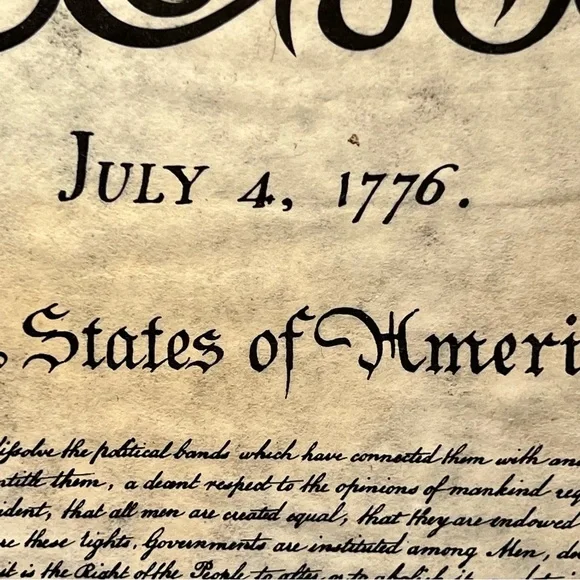 JULY 4, 1776.
States of Ameri
dissolve the political bands which have connected them with an
entitle them, a decent respect to the opinions of mankind req
ident, that all men are created equal, that they are endowed
re these rights, Governments are instituted among Men, de
it is the Right of the People to alter or to abolish it